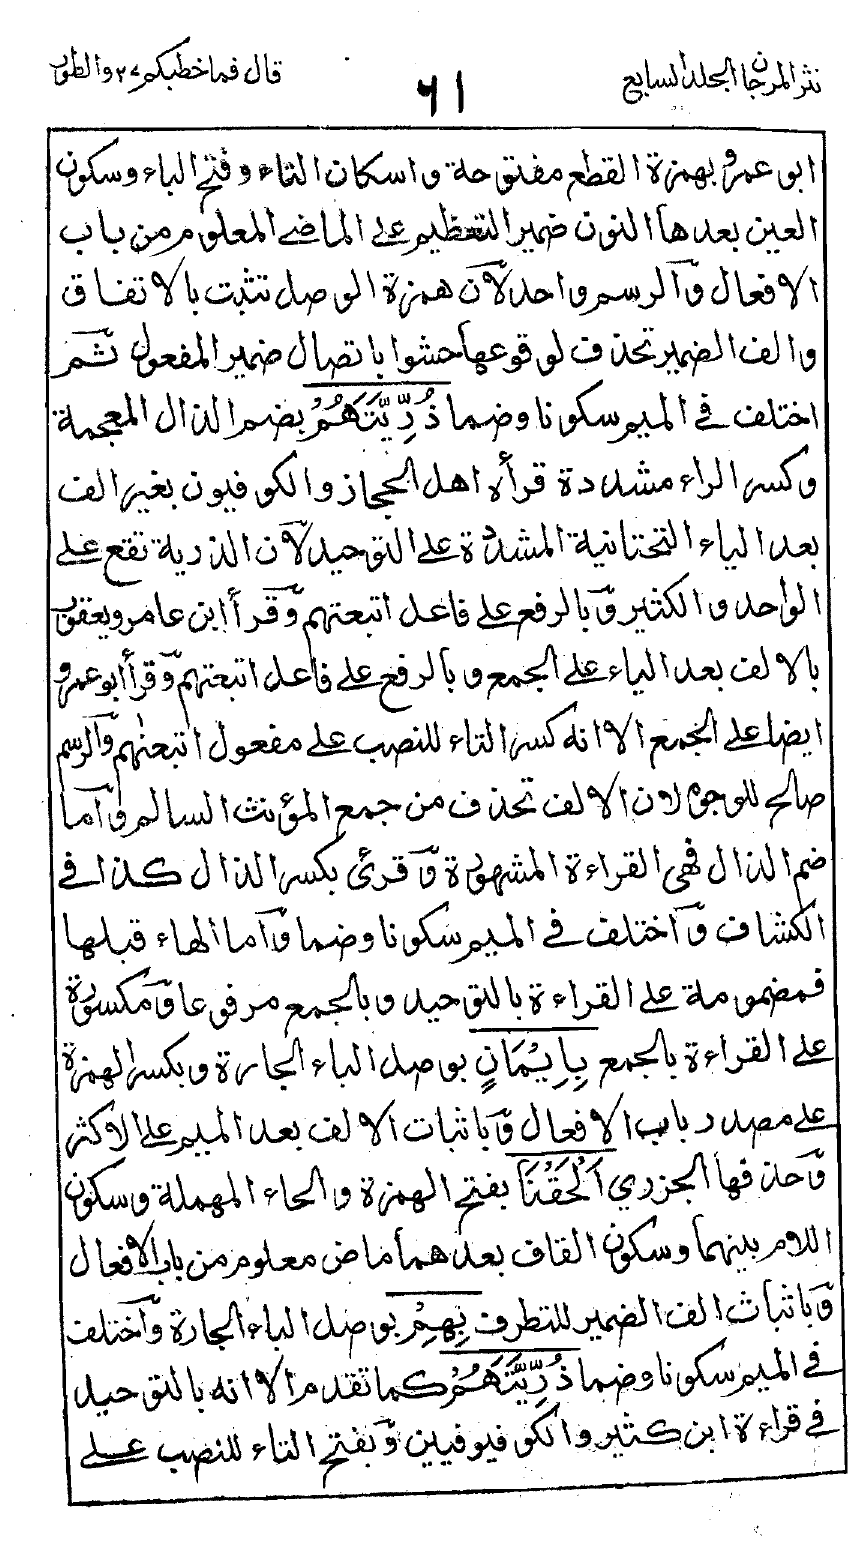 نثر المرجان الجلد السابع
٦١
قال فما خطبكم ٢٧ والطور
ابو عمرو بهمزة القطع مفتوحة واسكان التاء وفتح الباء وسكون
العين بعدها النون ضمير التعظيم على الماضي المعلوم من باب
الافعال والرسم واحد لان همزة الوصل تثبت بالاتفاق
والف الضمير تحذف لوقوعها حشوا باتصال ضمير المفعول ثم
اختلف في الميم سكونا وضما ذُرِّيَّتَهُمْ بضم الذال المعجمة
وكسر الراء مشددة قرأه اهل الحجاز والكوفيون بغير الف
بعد الياء التحتانية المشددة على التوحيد لان الذرية تقع على
الواحد والكثير وبالرفع على فاعل اتبعتهم وقرأ ابن عامر ويعقوب
بالالف بعد الياء على الجمع وبالرفع على فاعل اتبعتهم وقرأ ابو عمرو
ايضا على الجمع الا انه كسر التاء للنصب على مفعول اتبعنهم والرسم
صالح للوجوه لان الالف تحذف من جمع المؤنث السالم واما
ضم الذال فهي القراءة المشهورة وقرئ بكسر الذال كذا في
الكشاف واختلف في الميم سكونا وضما واما الهاء قبلها
فمضمومة على القراءة بالتوحيد وبالجمع مرفوعا ومكسورة
على القراءة بالجمع بِاِيْمَانٍ بوصل الباء الجارة وبكسر الهمزة
على مصدر باب الافعال وباثبات الالف بعد الميم على الاكثر
وحذفها الجزري اَلْحَقْنَا بفتح الهمزة والحاء المهملة وسكون
اللام بينهما وسكون القاف بعدهما ماض معلوم من باب الافعال
وباثبات الف الضمير للتطرف بِهِمْ بوصل الباء الجارة واختلف
في الميم سكونا وضما ذُرِّيَّتَهُمْ كما تقدم الا انه بالتوحيد
في قراءة ابن كثير والكوفيوفيين وبفتح التاء للنصب على